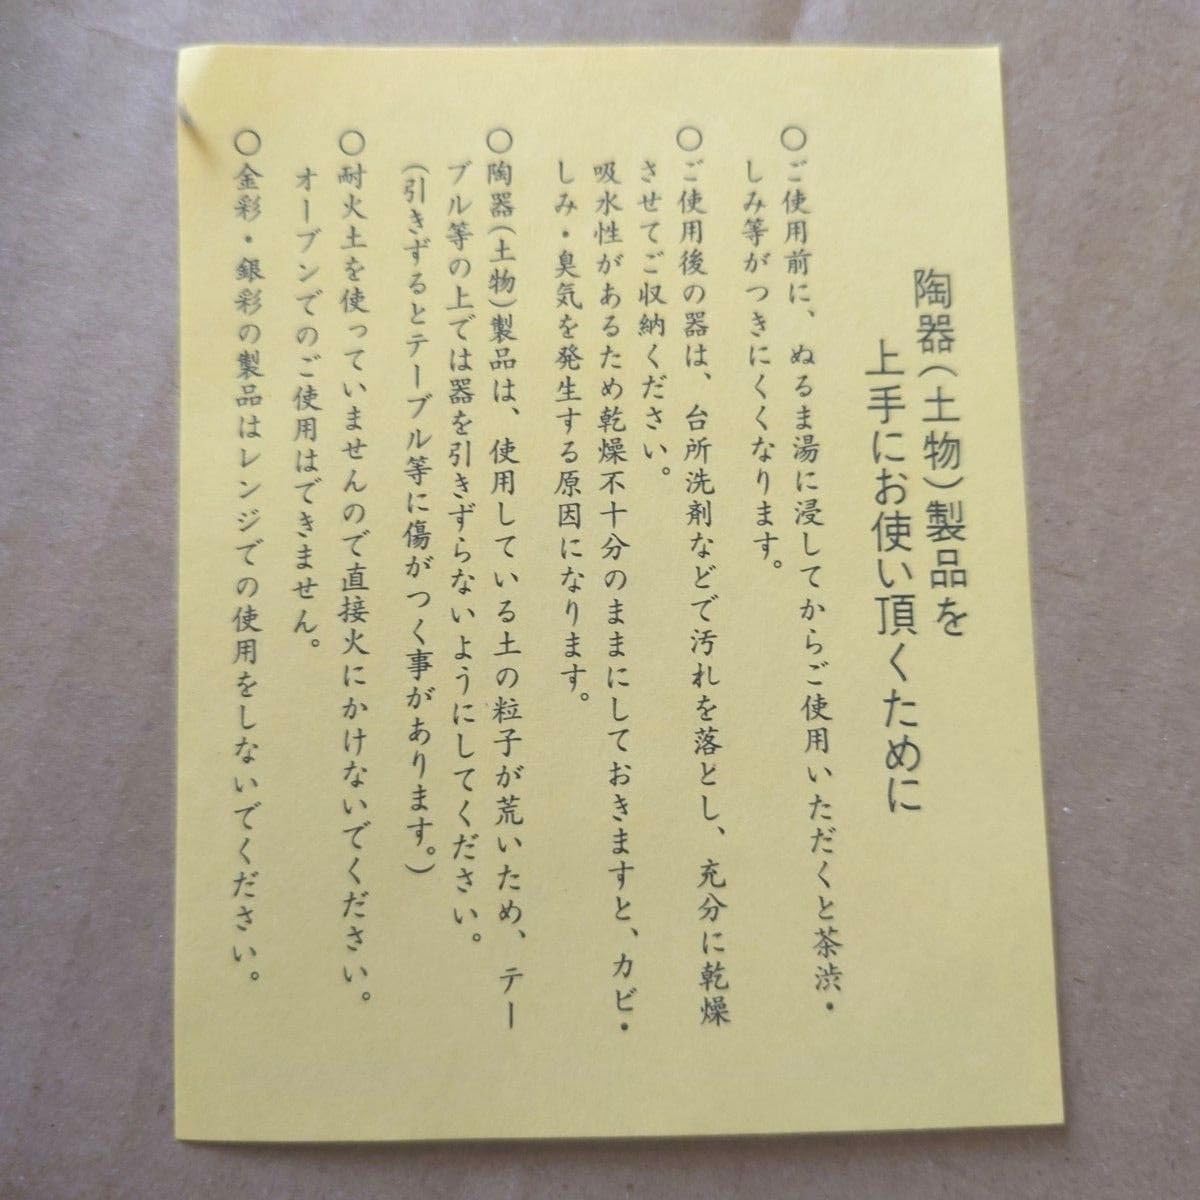 陶器(土物)製品を
上手にお使い頂くために
○ご使用前に、ぬるま湯に浸してからご使用いただくと茶渋・
しみ等がつきにくくなります。
○ご使用後の器は、台所洗剤などで汚れを落とし、充分に乾燥
させてご収納ください。
吸水性があるため乾燥不十分のままにしておきますと、カビ・
しみ・臭気を発生する原因になります。
○陶器(土物)製品は、使用している土の粒子が荒いため、テー
ブル等の上では器を引きずらないようにしてください。
(引きずるとテーブル等に傷がつく事があります。)
○耐火土を使っていませんので直接火にかけないでください。
オーブンでのご使用はできません。
○金彩・銀彩の製品はレンジでの使用をしないでください。